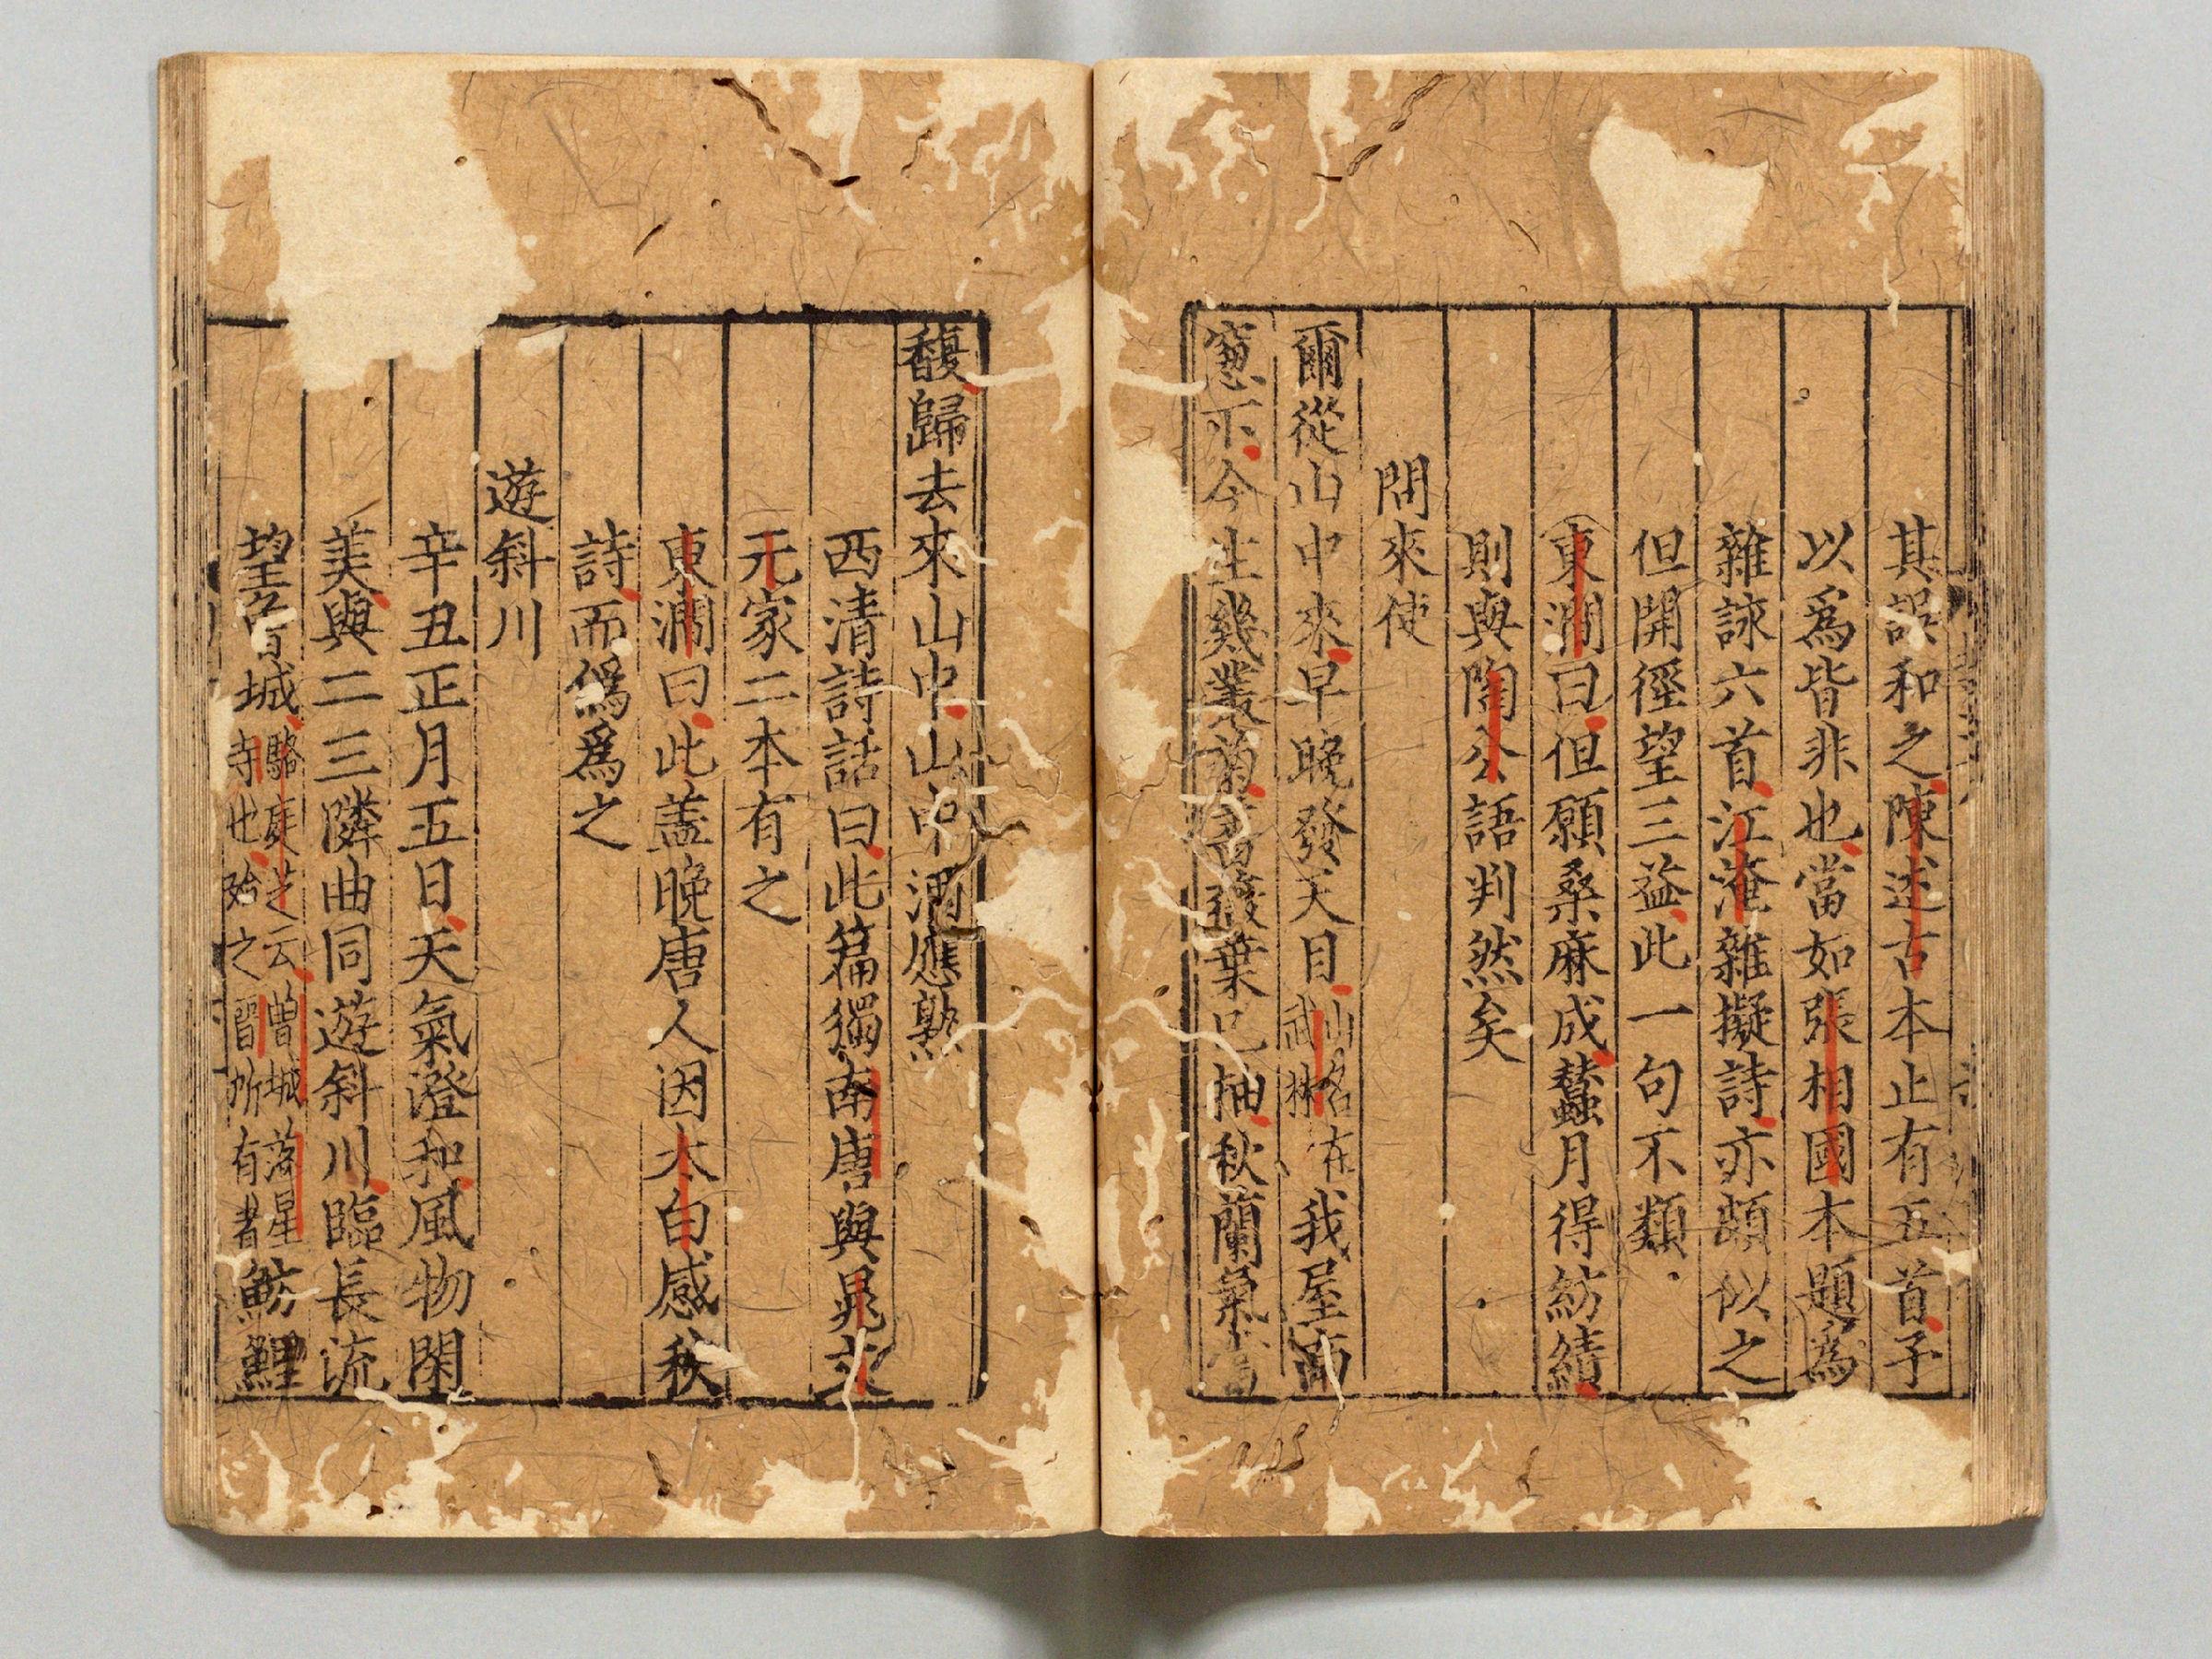 其誤和之陳述古本止有五首子
以爲皆非也當如張相國本題爲
雜詠六首江淹雜擬詩亦頗似之
但開徑望三益此一句不類
東澗曰但願桑麻成蠶月得紡績
則與陶公語判然矣
問來使
爾從山中來早晚發天目山名在武林我屋南
窻下今生幾叢菊薔薇葉已抽秋蘭氣當
馥歸去來山中山中酒應熟
西清詩話曰此篇獨南唐與晁文
元家二本有之
東澗曰此盖晚唐人因太白感秋
詩而僞爲之
遊斜川
辛丑正月五日天氣澄和風物閑
美與二三隣曲同遊斜川臨長流
望曾城駱庭芝云曾城落星寺也始之晉所有者魴鯉